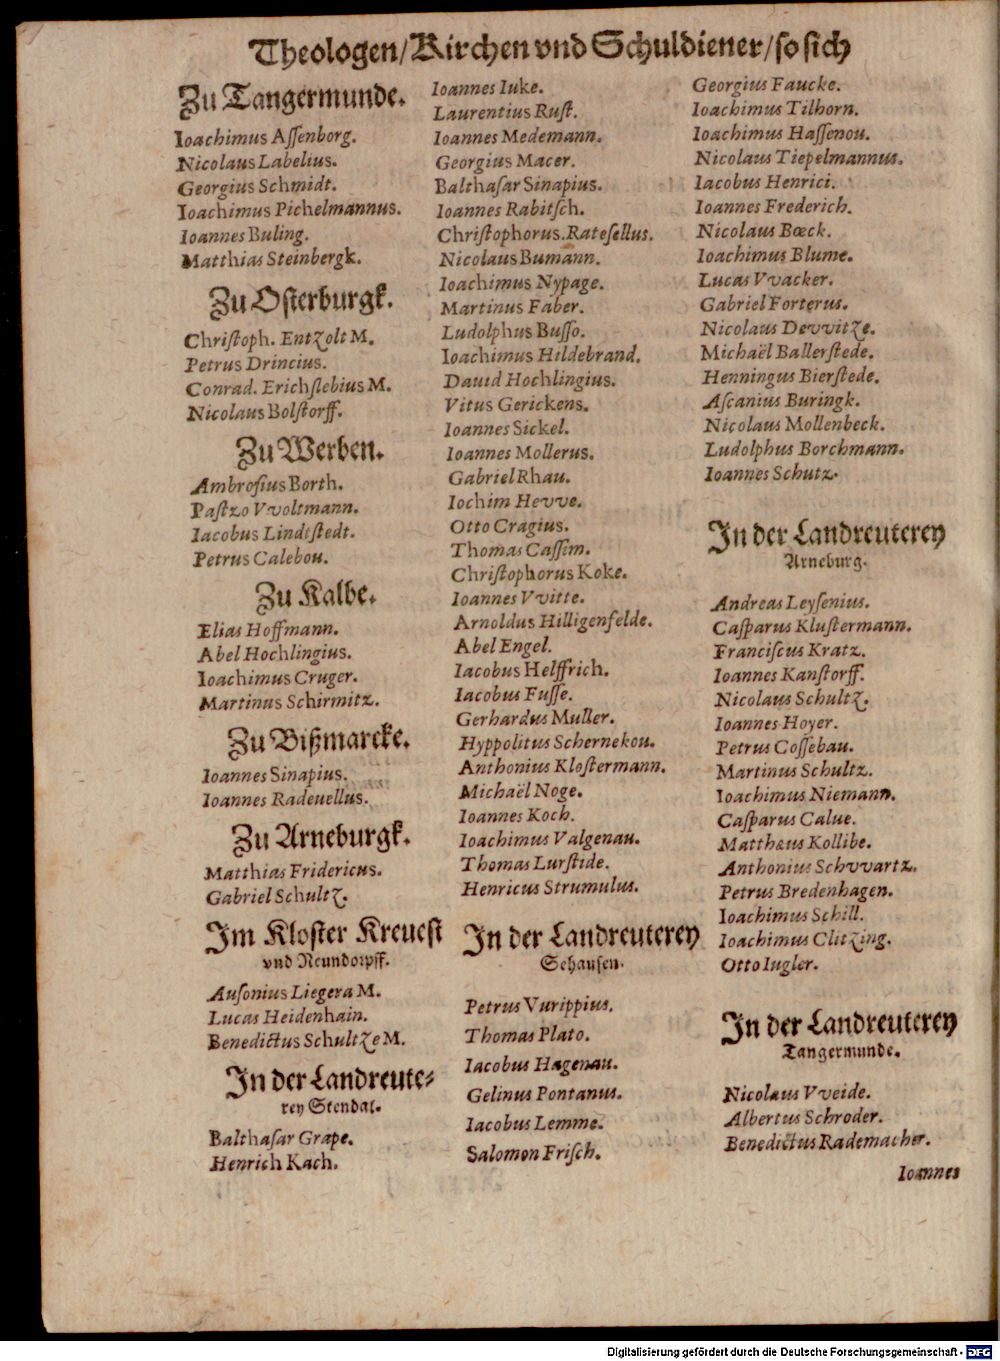 Theologen/Kirchen vnd Schuldiener/so sich
Zu Tangermunde.
Ioachimus Aſſenborg.
Nicolaus Labelius.
Georgius Schmidt.
Ioachimus Pichelmannus.
Ioannes Buling.
Matthias Steinbergk.
Zu Oſterburgk.
Chriſtoph. Entzolt M.
Petrus Drincius.
Conrad. Erichſlebius M.
Nicolaus Bolſtorff.
Zu Werben.
Ambroſius Borth.
Paſtzo Vvoltmann.
Iacobus Lindtſtedt.
Petrus Calebou.
Zu Kalbe.
Elias Hoffmann.
Abel Hochlingius.
Ioachimus Cruger.
Martinus Schirmitz.
Zu Bißmarcke.
Ioannes Sinapius.
Ioannes Radeuellus.
Zu Arneburgk.
Matthias Fridericus.
Gabriel Schultz.
Im Kloſter Kreueſt
vnd Neundorpff.
Auſonius Liegera M.
Lucas Heidenhain.
Benedictus Schultze M.
In der Landreute-
rey Stendal.
Balthaſar Grape.
Henrich Kach.
Ioannes Iuke.
Laurentius Ruſt.
Ioannes Medemann.
Georgius Macer.
Balthaſar Sinapius.
Ioannes Rabitſch.
Chriſtophorus.Rateſellus.
Nicolaus Bumann.
Ioachimus Nypage.
Martinus Faber.
Ludolphus Buſſo.
Ioachimus Hildebrand.
Dauid Hochlingius.
Vitus Gerickens.
Ioannes Sickel.
Ioannes Mollerus.
Gabriel Rhau.
Iochim Hevve.
Otto Cragius.
Thomas Caſſim.
Chriſtophorus Koke.
Ioannes Vvitte.
Arnoldus Hilligenfelde.
Abel Engel.
Iacobus Helffrich.
Iacobus Fuſſe.
Gerhardus Muller.
Hyppolitus Schernekou.
Anthonius Kloſtermann.
Michaël Noge.
Ioannes Koch.
Ioachimus Valgenau.
Thomas Lurſtide.
Henricus Strumulus.
In der Landreuterey
Sehauſen.
Petrus Vurippius.
Thomas Plato.
Iacobus Hagenau.
Gelinus Pontanus.
Iacobus Lemme.
Salomon Friſch.
Georgius Faucke.
Ioachimus Tilhorn.
Ioachimus Haſſenou.
Nicolaus Tiepelmannus.
Iacobus Henrici.
Ioannes Frederich.
Nicolaus Bœck.
Ioachimus Blume.
Lucas Vvacker.
Gabriel Forterus.
Nicolaus Devvitze.
Michaël Ballerſtede.
Henningus Bierſtede.
Aſcanius Buringk.
Nicolaus Mollenbeck.
Ludolphus Borchmann.
Ioannes Schutz.
In der Landreuterey
Arneburg.
Andreas Leyſenius.
Caſparus Kluſtermann.
Franciſcus Kratz.
Ioannes Kanſtorff.
Nicolaus Schultz.
Ioannes Hoyer.
Petrus Coſſebau.
Martinus Schultz.
Ioachimus Niemann.
Caſparus Calue.
Matthæus Kollibe.
Anthonius Schvvartz.
Petrus Bredenhagen.
Ioachimus Schill.
Ioachimus Clitzing.
Otto Iugler.
In der Landreuterey
Tangermunde.
Nicolaus Vveide.
Albertus Schroder.
Benedictus Rademacher.
Ioannes
Digitalisierung gefördert durch die Deutsche Forschungsgemeinschaft - DFG